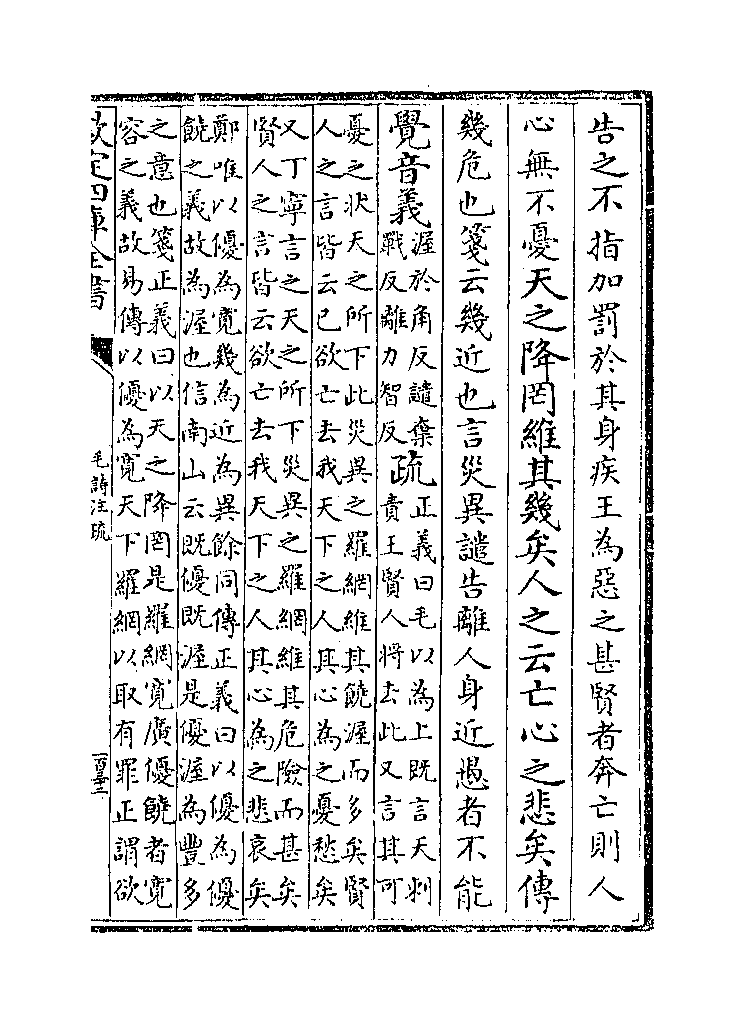 告之不指加罰於其身疾王為惡之甚賢者奔亡則人
心無不憂天之降罔維其幾矣人之云亡心之悲矣傳
幾危也箋云幾近也言災異譴告離人身近愚者不能
覺音義
渥於角反譴棄
戰反離力智反
疏
正義曰毛以為上既言天刺
責王賢人將去此又言其可
憂之狀天之所下此災異之羅網維其饒渥而多矣賢
人之言皆云已欲亡去我天下之人其心為之憂愁矣
又丁寧言之天之所下災異之羅網維其危險而甚矣
賢人之言皆云欲亡去我天下之人其心為之悲哀矣
鄭唯以優為寬幾為近為異餘同傳正義曰以優為優
饒之義故為渥也信南山云既優既渥是優渥為豐多
之意也箋正義曰以天之降罔是羅網寬廣優饒者寬
容之義故易傳以優為寬天下羅網以取有罪正謂欲
欽定四庫全書
毛詩注疏